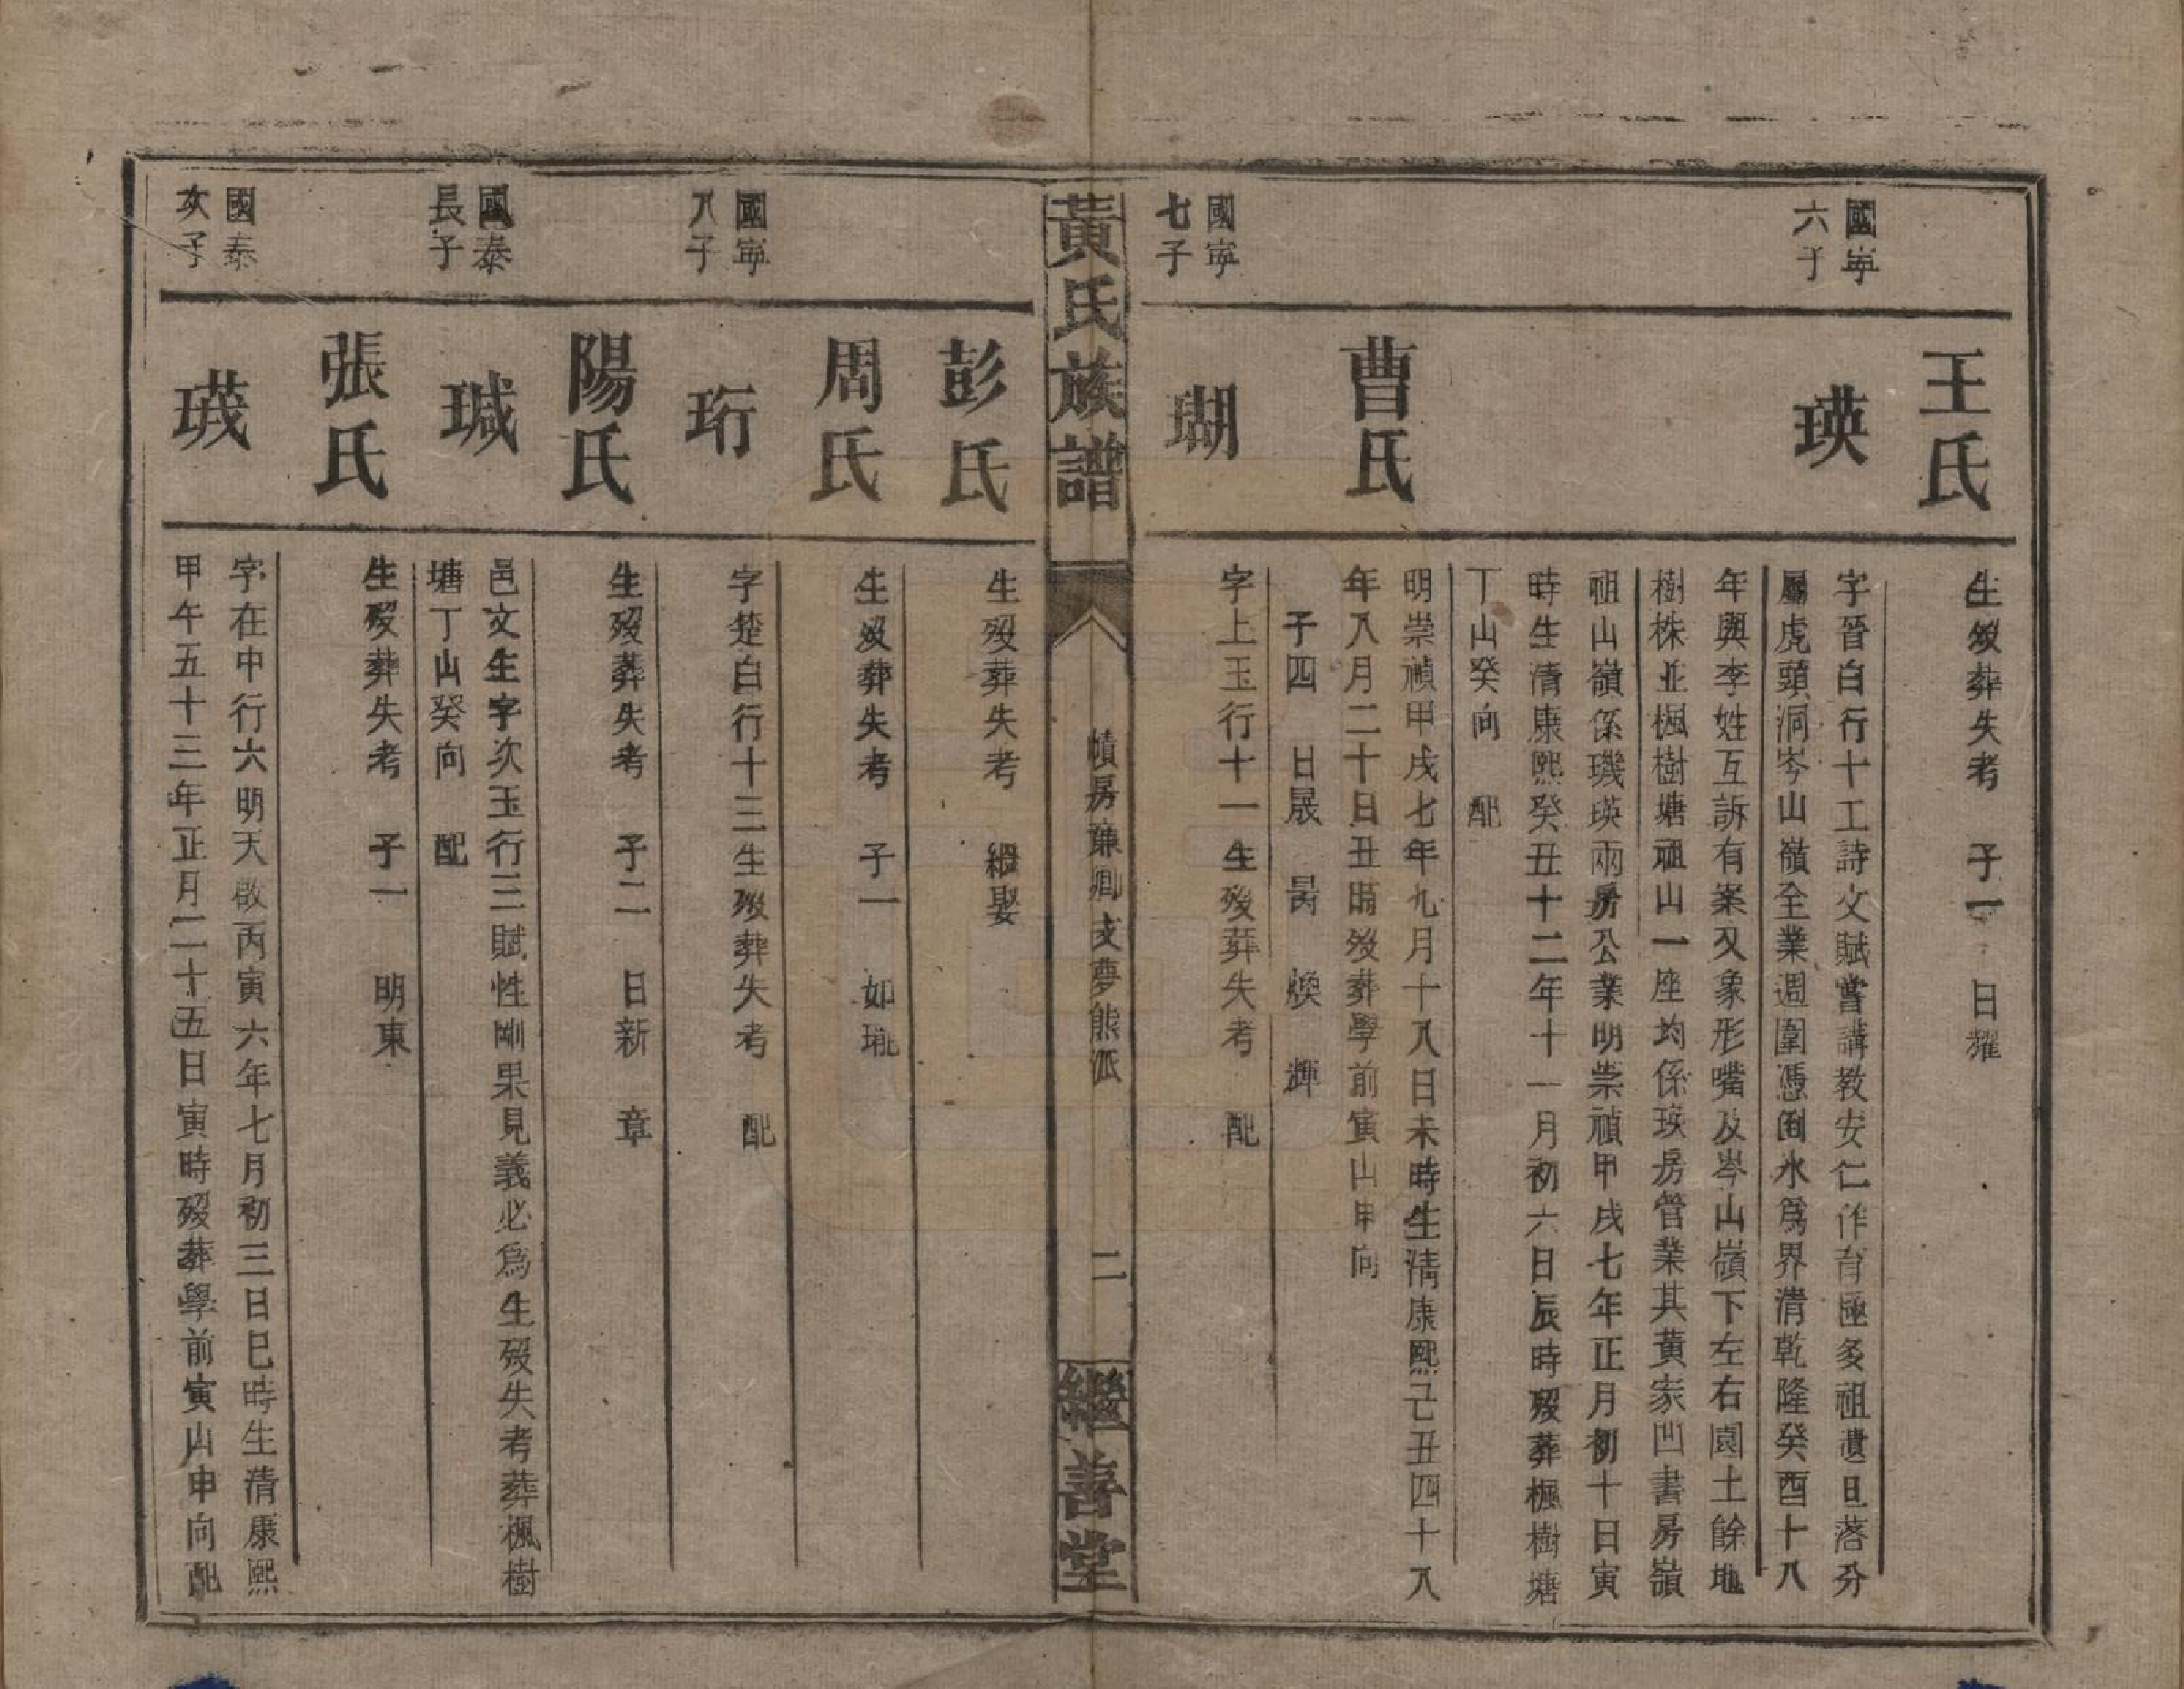 王氏
生歿葬失考 子一 日耀
國寧六子
瑛
字晉白行十工詩文賦嘗講教安仁作育極多祖遺旦落分
屬虎頭洞岑山嶺全業週圍憑倒水爲界清乾隆癸酉十八
年與李姓互訴有案又象形嘴及岑山嶺下左右園土餘地
樹株並楓樹塘祖山一座均係瑛房管業其黄家凹書房嶺
祖山嶺係璣瑛兩房公業明崇禎甲戌七年正月初十日寅
時生清康熙癸丑十二年十一月初六日辰時歿葬楓樹塘
丁山癸向 配
曹氏
明崇禎甲戌七年九月十八日未時生清康熙己丑四十八
年八月二十日丑時歿葬學前寅山申向
子四 日晟 暠 煥 輝
國寧七子
瑚
字上玉行十一生歿葬失考 配
黄氏族譜
幘房豫卿支夢熊派
二
繼善堂
彭氏
生歿葬失考 繼娶
周氏
生歿葬失考 子一 如珧
國寧八子
珩
字楚白行十三生歿葬失考 配
陽氏
生歿葬失考 子二 日新 章
國泰長子
瑊
邑文生字次玉行三賦性剛果見義必爲生歿失考葬楓樹
塘丁山癸向 配
張氏
生歿葬失考 子一 明東
國泰次子
字在中行六明天啟丙寅六年七月初三日巳時生清康熙
甲午五十三年正月二十五日寅時歿葬學前寅山申向配